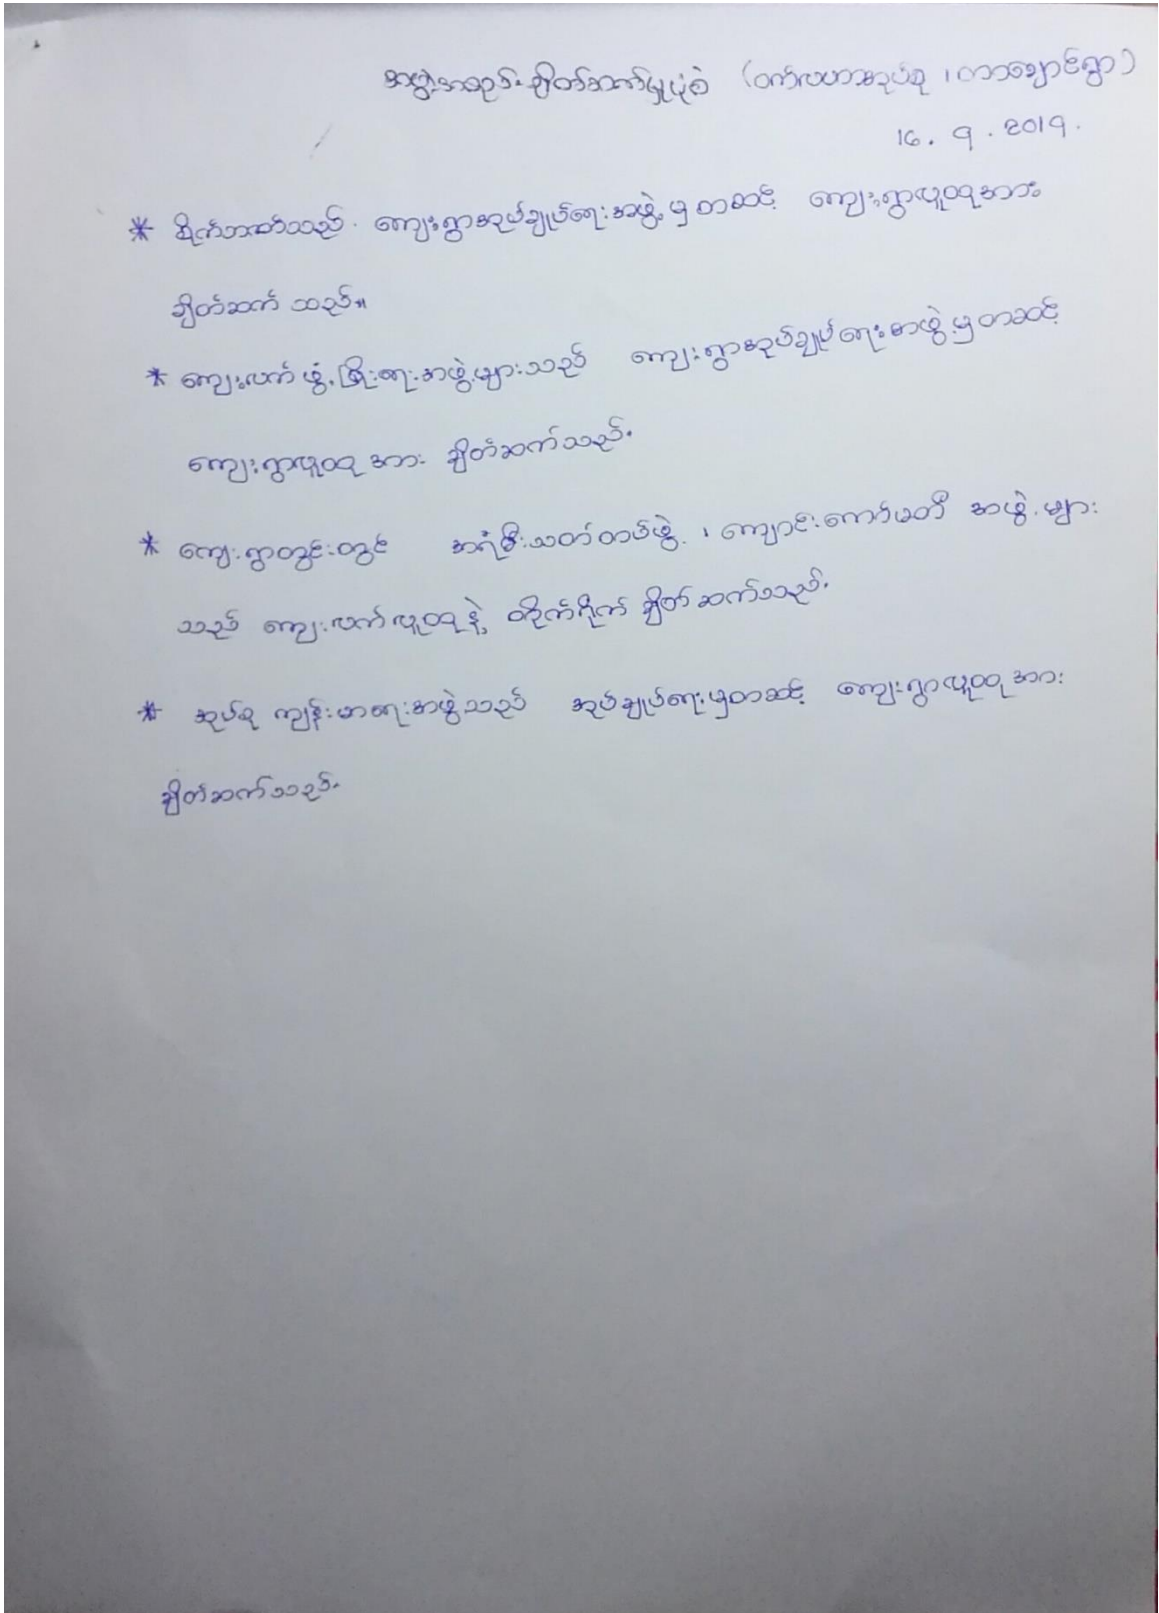 အဖွဲ့အစည်းချိတ်ဆက်မှုပုံစံ (ဝက်လဟာအုပ်စု ၊ ကာချောင်ရွာ)
16 . 9 . 2019 .
* စိုက်ဘဏ်သည် ကျေးရွာအုပ်ချုပ်ရေးအဖွဲ့မှတဆင့် ကျေးရွာလူထုအား
ချိတ်ဆက် သည်။
* ကျေးလက်ဖွံ့ဖြိုးရေးအဖွဲ့များသည် ကျေးရွာအုပ်ချုပ်ရေးအဖွဲ့မှတဆင့်
ကျေးရွာလူထုအား ချိတ်ဆက်သည်.
* ကျေးရွာတွင်းတွင် အရံမီးသတ်တပ်ဖွဲ့ ၊ ကျောင်းကော်မတီ အဖွဲ့များ
သည် ကျေးလက်လူထုနဲ့ တိုက်ရိုက် ချိတ်ဆက်သည်.
* အုပ်စု ကျန်းမာရေးအဖွဲ့သည် အုပ်ချုပ်ရေးမှတဆင့် ကျေးရွာလူထုအား
ချိတ်ဆက်သည်.